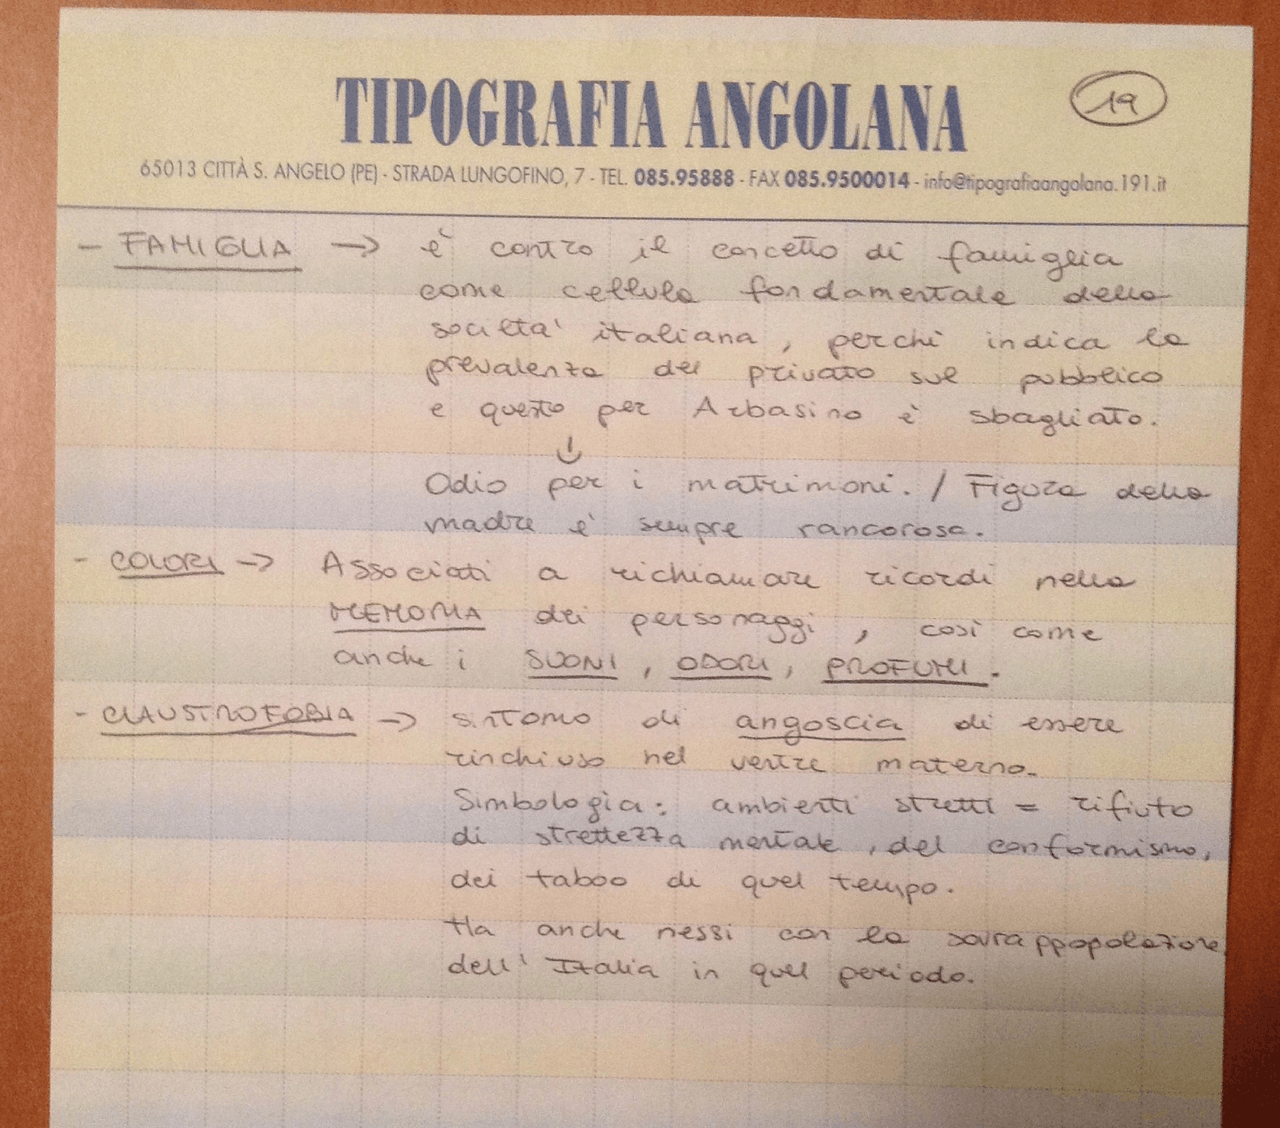 TIPOGRAFIA ANGOLANA
19
65013 CITTÀ S. ANGELO (PE) - STRADA LUNGOFINO, 7 - TEL. 085.95888 - FAX 085.9500014 - info@tipografiaangolana.191.it
- FAMIGLIA → è contro il concetto di famiglia
come cellula fondamentale della
società italiana, perchè indica la
prevalenza del privato sul pubblico
e questo per Arbasino è sbagliato.
↓
Odio per i matrimoni. / Figura della
madre è sempre rancorosa.
- COLORI → Associati a richiamare ricordi nella
MEMORIA dei personaggi, così come
anche i SUONI, ODORI, PROFUMI.
- CLAUSTROFOBIA → sintomo di angoscia di essere
rinchiuso nel ventre materno.
Simbologia: ambienti stretti = rifiuto
di strettezza mentale, del conformismo,
dei taboo di quel tempo.
Ha anche nessi con la sovrappopolazione
dell'Italia in quel periodo.